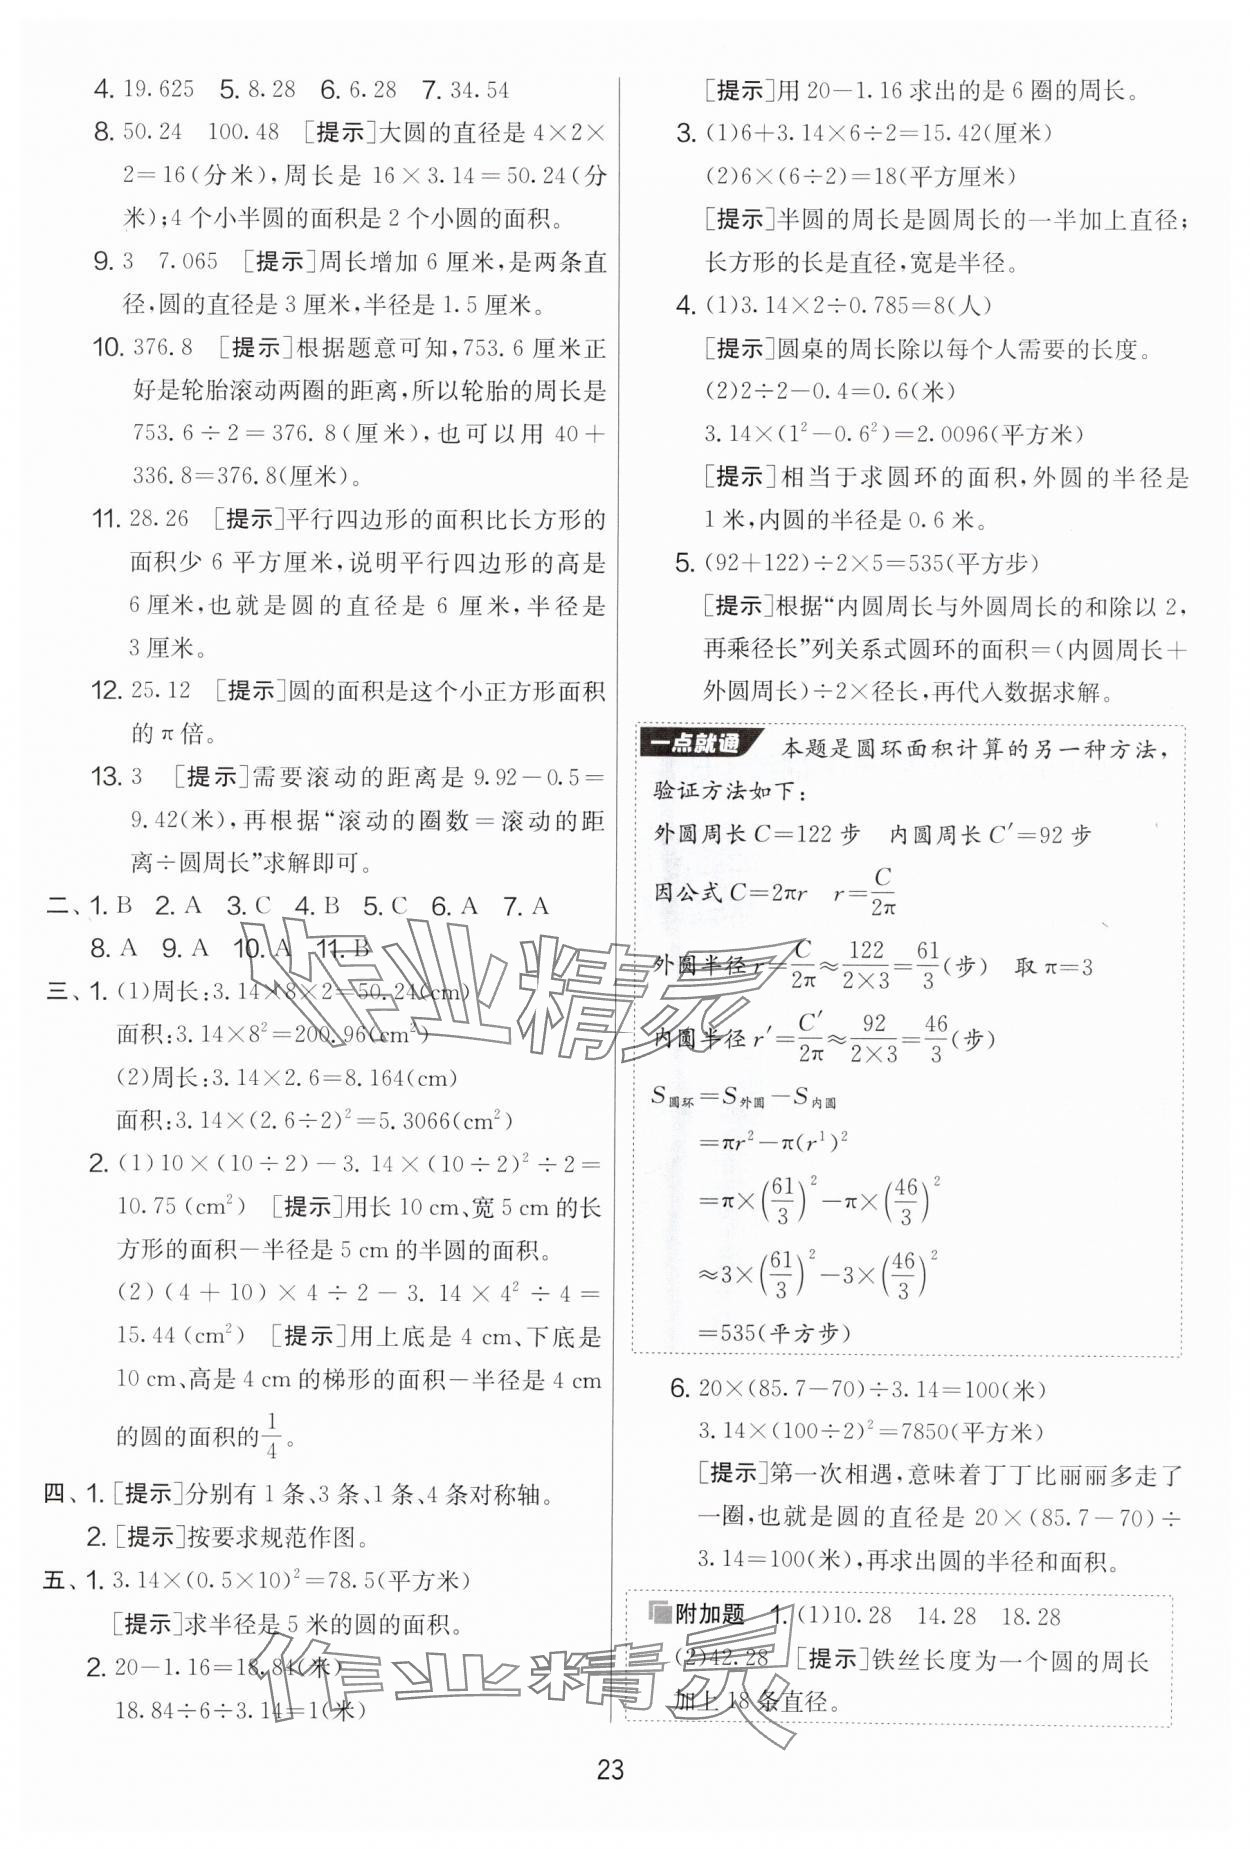 4. 19.625 5. 8.28 6. 6.28 7. 34.54
8. 50.24 100.48 [提示]大圆的直径是 4×2×
2=16(分米),周长是 16×3.14=50.24(分
米);4 个小半圆的面积是 2 个小圆的面积。
9. 3 7.065 [提示]周长增加 6 厘米,是两条直
径,圆的直径是 3 厘米,半径是 1.5 厘米。
10. 376.8 [提示]根据题意可知,753.6 厘米正
好是轮胎滚动两圈的距离,所以轮胎的周长是
753.6÷2=376.8(厘米),也可以用 40+
336.8=376.8(厘米)。
11. 28.26 [提示]平行四边形的面积比长方形的
面积少 6 平方厘米,说明平行四边形的高是
6 厘米,也就是圆的直径是 6 厘米,半径是
3 厘米。
12. 25.12 [提示]圆的面积是这个小正方形面积
的 π 倍。
13. 3 [提示]需要滚动的距离是 9.92-0.5=
9.42(米),再根据“滚动的圈数=滚动的距
离÷圆周长”求解即可。
二、1. B 2. A 3. C 4. B 5. C 6. A 7. A
8. A 9. A 10. A 11. B
三、1. (1)周长:3.14×8×2=50.24(cm)
面积:3.14×8²=200.96(cm²)
(2)周长:3.14×2.6=8.164(cm)
面积:3.14×(2.6÷2)²=5.3066(cm²)
2. (1)10×(10÷2)-3.14×(10÷2)²÷2=
10.75(cm²) [提示]用长 10 cm、宽 5 cm 的长
方形的面积-半径是 5 cm 的半圆的面积。
(2)(4+10)×4÷2-3.14×4²÷4=
15.44(cm²) [提示]用上底是 4 cm、下底是
10 cm、高是 4 cm 的梯形的面积-半径是 4 cm
的圆的面积的1/4。
四、1. [提示]分别有 1 条、3 条、1 条、4 条对称轴。
2. [提示]按要求规范作图。
五、1. 3.14×(0.5×10)²=78.5(平方米)
[提示]求半径是 5 米的圆的面积。
2. 20-1.16=18.84(米)
18.84÷6÷3.14=1(米)
[提示]用 20-1.16 求出的是 6 圈的周长。
3. (1)6+3.14×6÷2=15.42(厘米)
(2)6×(6÷2)=18(平方厘米)
[提示]半圆的周长是圆周长的一半加上直径;
长方形的长是直径,宽是半径。
4. (1)3.14×2÷0.785=8(人)
[提示]圆桌的周长除以每个人需要的长度。
(2)2÷2-0.4=0.6(米)
3.14×(1²-0.6²)=2.0096(平方米)
[提示]相当于求圆环的面积,外圆的半径是
1 米,内圆的半径是 0.6 米。
5. (92+122)÷2×5=535(平方步)
[提示]根据“内圆周长与外圆周长的和除以 2,
再乘径长”列关系式圆环的面积=(内圆周长+
外圆周长)÷2×径长,再代入数据求解。
一点就通 本题是圆环面积计算的另一种方法,
验证方法如下:
外圆周长 C=122 步 内圆周长 C′=92 步
因公式 C=2πr r=C/2π
外圆半径 r=C/2π≈122/(2×3)=61/3(步) 取 π=3
内圆半径 r′=C′/2π≈92/(2×3)=46/3(步)
S圆环=S外圆-S内圆
=πr²-π(r¹)²
=π×(61/3)²-π×(46/3)²
≈3×(61/3)²-3×(46/3)²
=535(平方步)
6. 20×(85.7-70)÷3.14=100(米)
3.14×(100÷2)²=7850(平方米)
[提示]第一次相遇,意味着丁丁比丽丽多走了
一圈,也就是圆的直径是 20×(85.7-70)÷
3.14=100(米),再求出圆的半径和面积。
附加题 1. (1)10.28 14.28 18.28
(2)42.28 [提示]铁丝长度为一个圆的周长
加上 18 条直径。
23
作业精灵
作业精灵